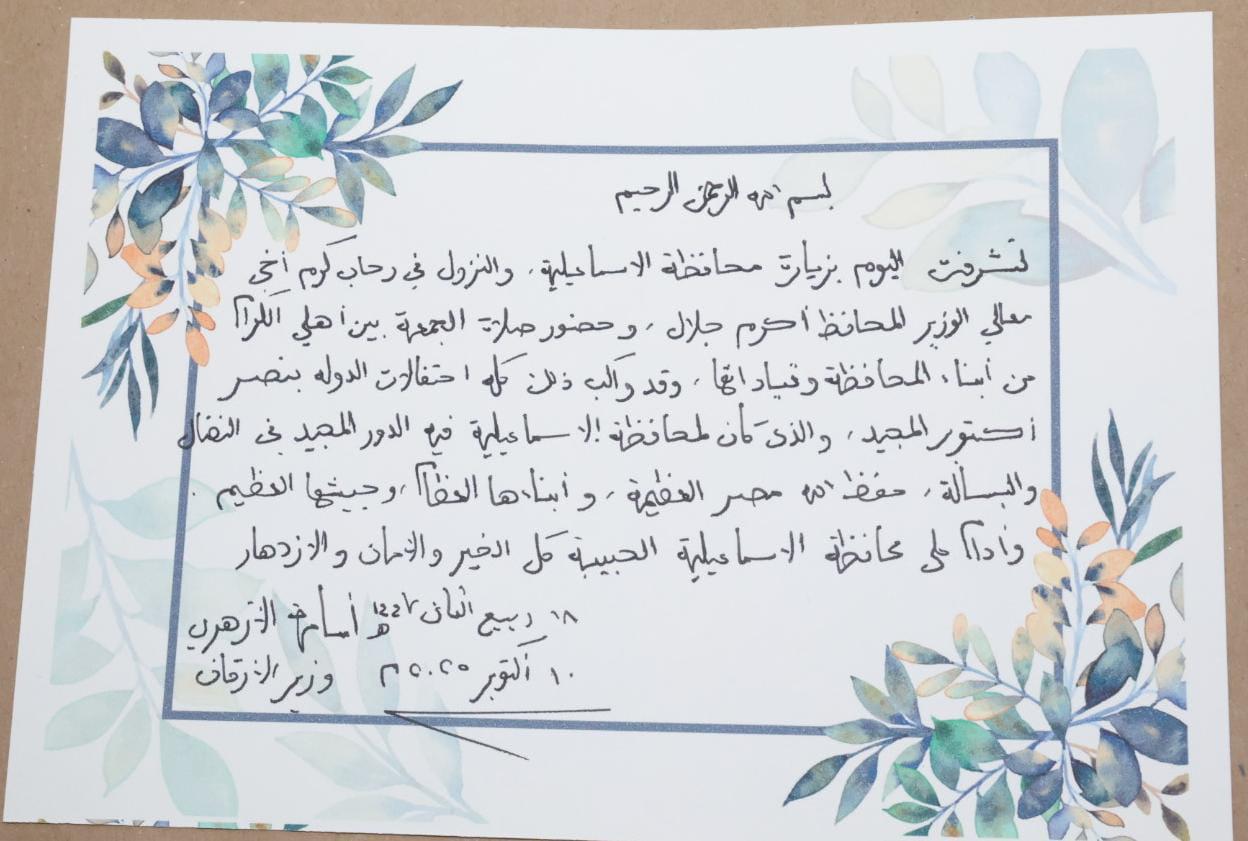 بسم الله الرحمن الرحيم
تشرفت اليوم بزيارة محافظة الاسماعيلية، والنزول في رحاب كرم أخي
معالي الوزير المحافظ أكرم جلال، وحضور صلاة الجمعة بين أهلي الكرام
من أبناء المحافظة وقياداتها، وقد واكب ذلك كله احتفالات الدوله بنصر
أكتوبر المجيد، والذي كان لمحافظة الاسماعيلية فيه الدور المجيد في النضال
والبسالة، حفظ الله مصر العظيمة، وأبناءها العظام، وجيشها العظيم.
وأدام على محافظة الاسماعيلية الحبيبة كل الخير والأمان والازدهار
١٨ ربيع الثاني ١٤٤٧هـ أسامة الأزهري
١٠ أكتوبر ٢٠٢٥م وزير الأوقاف